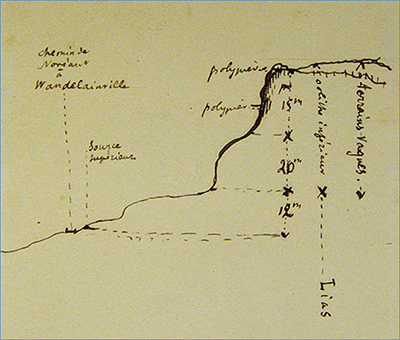 Chemin de
Noréaut
à
Wandelainville
Source
Supérieure
polypier
polypier
15m
20m
12m
oolithe inférieur
Lias
terrains vagues